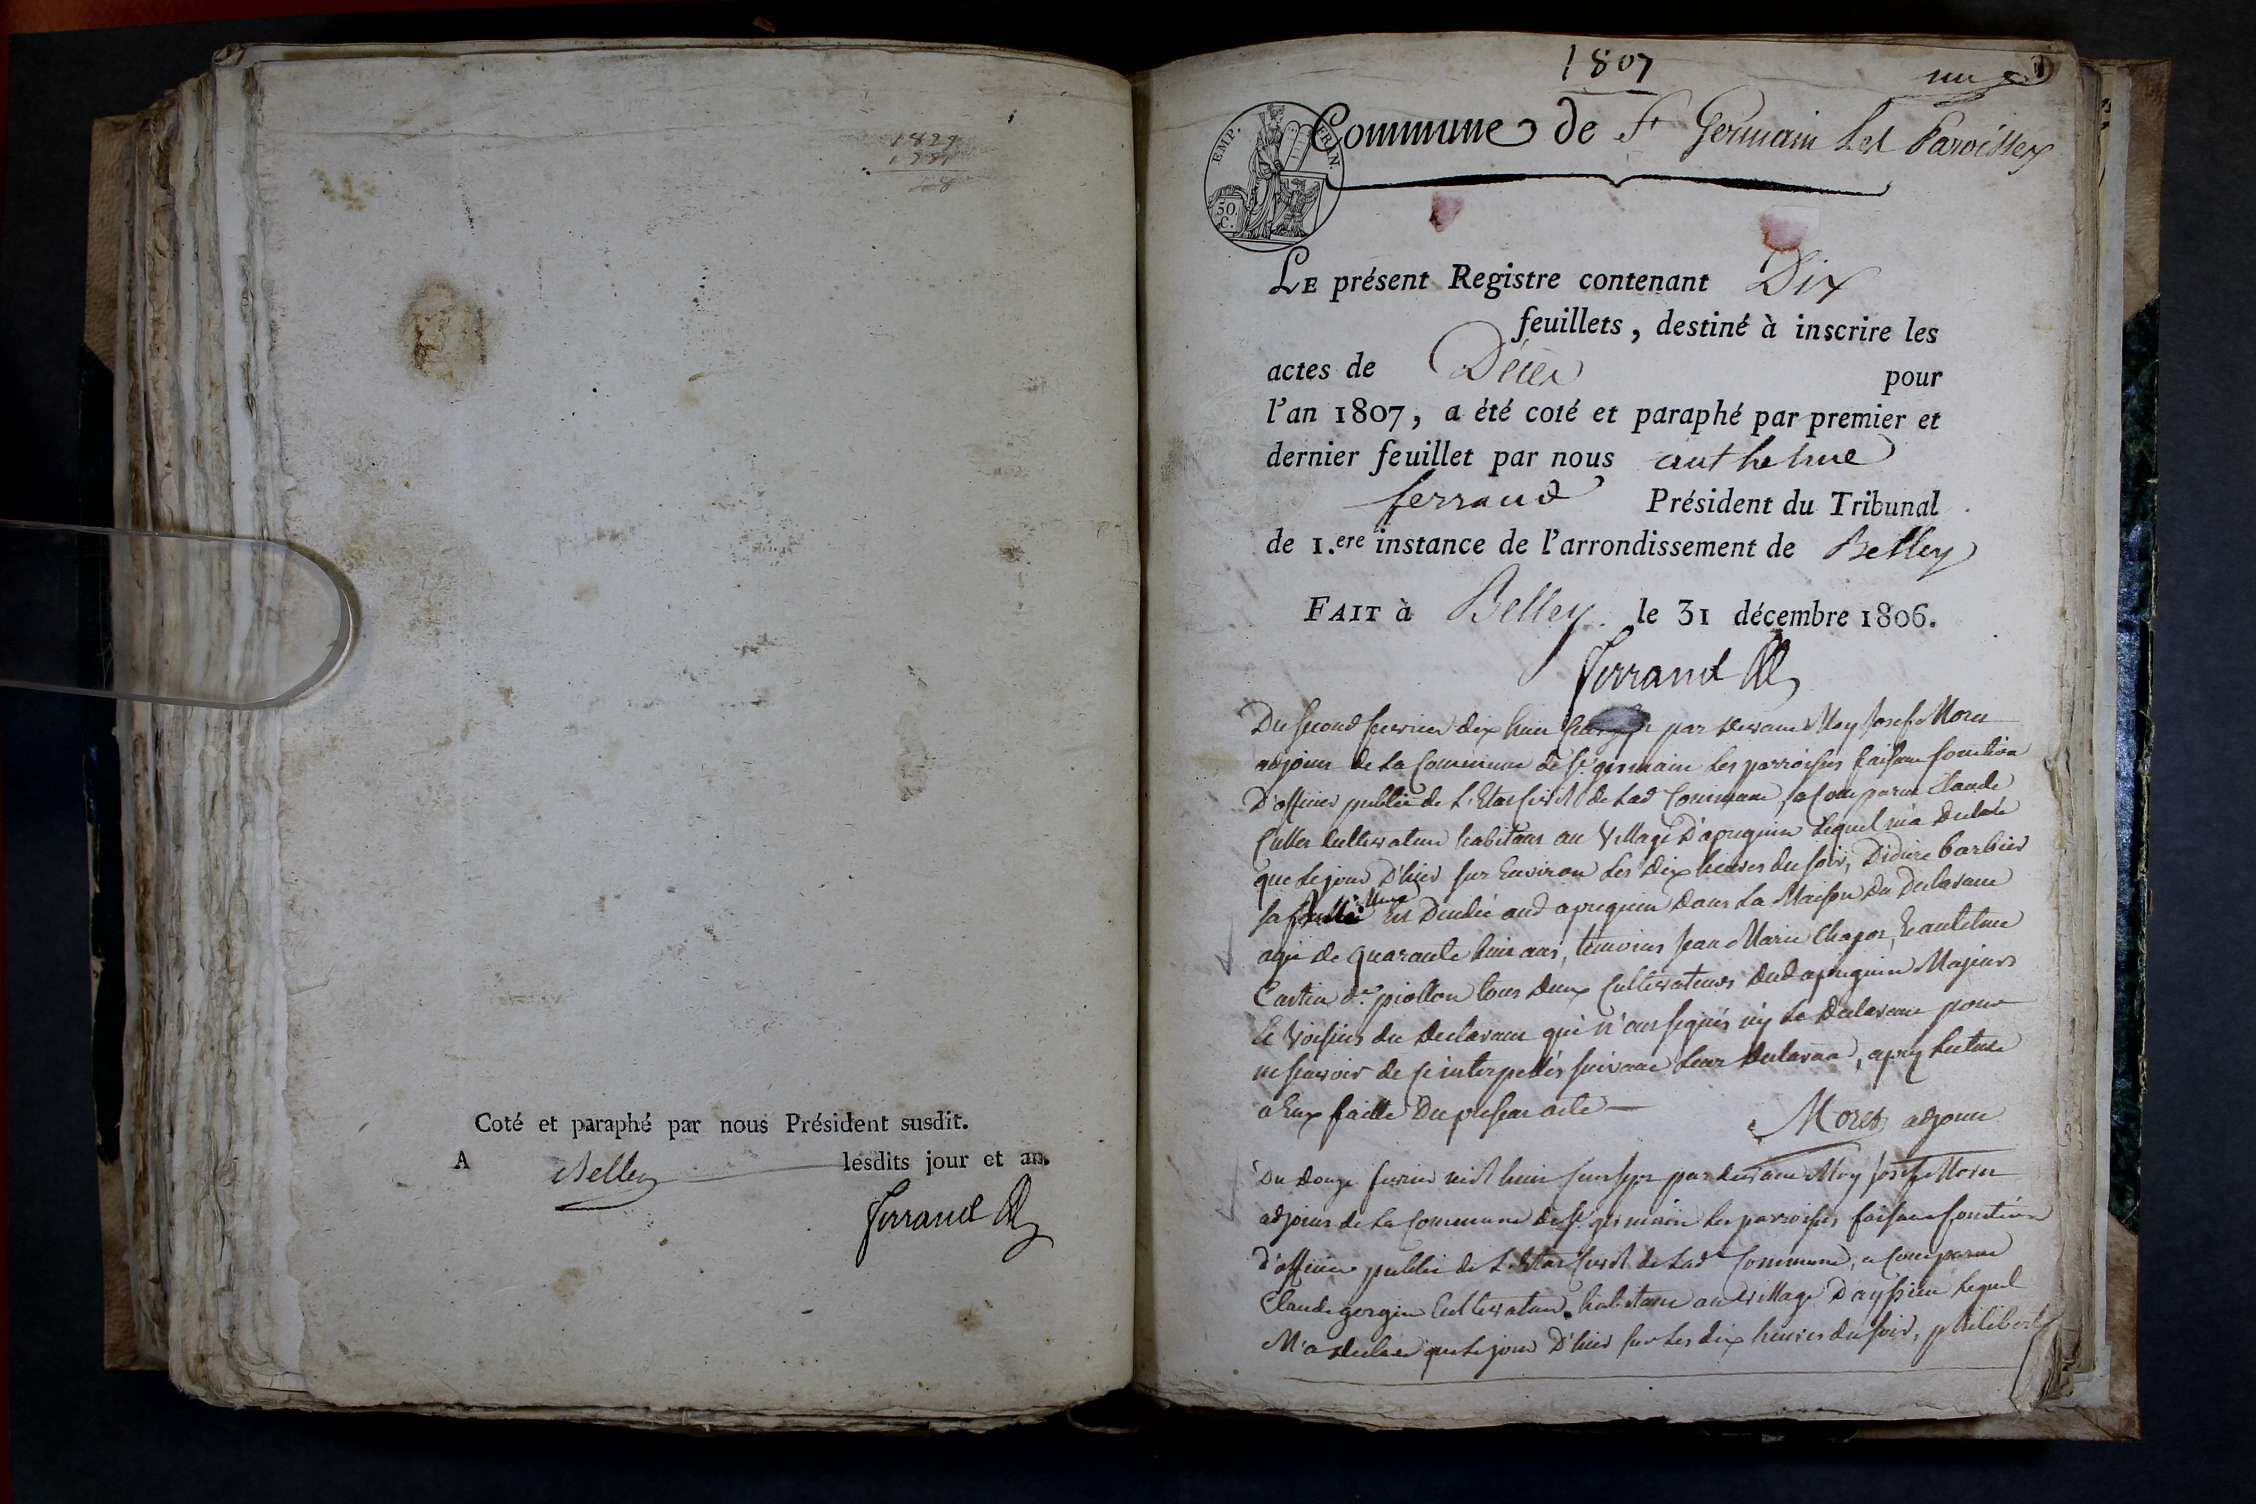 1829
Coté et paraphé par nous Président susdit.
A Belley lesdits jour et an.
Ferrand
1807
un
1
Commune de St Germain Les Paroisses
EMP. FRAN.
50. C.
LE présent Registre contenant Dix
feuillets, destiné à inscrire les
actes de Décès pour
l'an 1807, a été coté et paraphé par premier et
dernier feuillet par nous anthelme
ferrand Président du Tribunal
de 1.ere instance de l'arrondissement de Belley
FAIT à Belley le 31 décembre 1806.
Ferrand
Du second fevrier dix huit par devant Moy Josef Moret
adjoint de la Commune de St germain les parroisses faisant fonction
D'officier public de L'Etat Civil de lad Commune, a comparut Claude
Cultivateur habitant au Village D'apregnin Lequel m'a declaré
que le jour D'hier sur Environ les dix heures du soir, Didiere barbier
sa est Decedée aud apregnin dans La Maison du Declarant
agée de quarante huit ans, temoins Jean Marie Chapot, Et antelme
Castin dt piollon tous deux Cultivateurs dud apregnin Majeurs
Et Voisins du Declarant qui n'ont signés ny le Declarant pour
ne scavoir de ce interpellés suivant leur declaraon, apres lecture
a Eux faitte Du present acte —
Moret adjoint
Du douze fevrier mil huit cent sept par devant Moy Josef Moret
adjoint de la Commune de St germain les paroisses faisant fonction
d'officier public de L'Etat Civil de lad Commune, a Comparut
Claude gorgin Cultivateur habitant au village D'ayssieu Lequel
M'a declaré que le jour D'hier sur les dix heures du soir, philibert